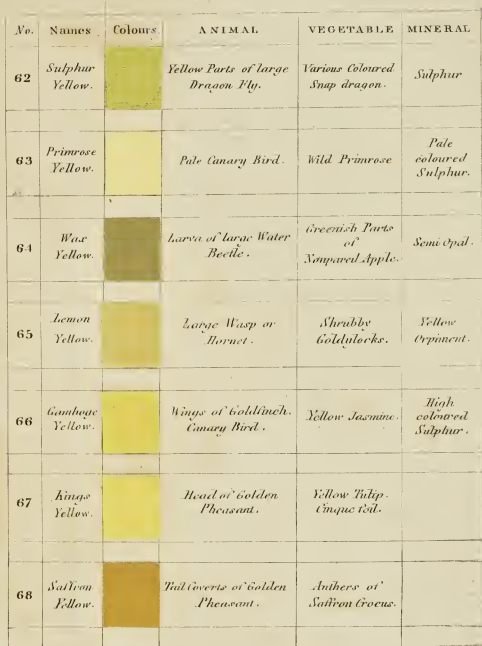 No. Names Colours ANIMAL VEGETABLE MINERAL
62 Sulphur Yellow. Yellow Parts of large Dragon Fly. Various Coloured Snap dragon. Sulphur
63 Primrose Yellow. Pale Canary Bird. Wild Primrose Pale coloured Sulphur.
64 Wax Yellow. Larva of large Water Beetle. Greenish Parts of Nonpareil Apple. Semi Opal.
65 Lemon Yellow. Large Wasp or Hornet. Shrubby Goldylocks. Yellow Orpiment.
66 Gamboge Yellow. Wings of Goldfinch. Canary Bird. Yellow Jasmine. High coloured Sulphur.
67 Kings Yellow. Head of Golden Pheasant. Yellow Tulip. Cinque foil.
68 Saffron Yellow. Tail Coverts of Golden Pheasant. Anthers of Saffron Crocus.